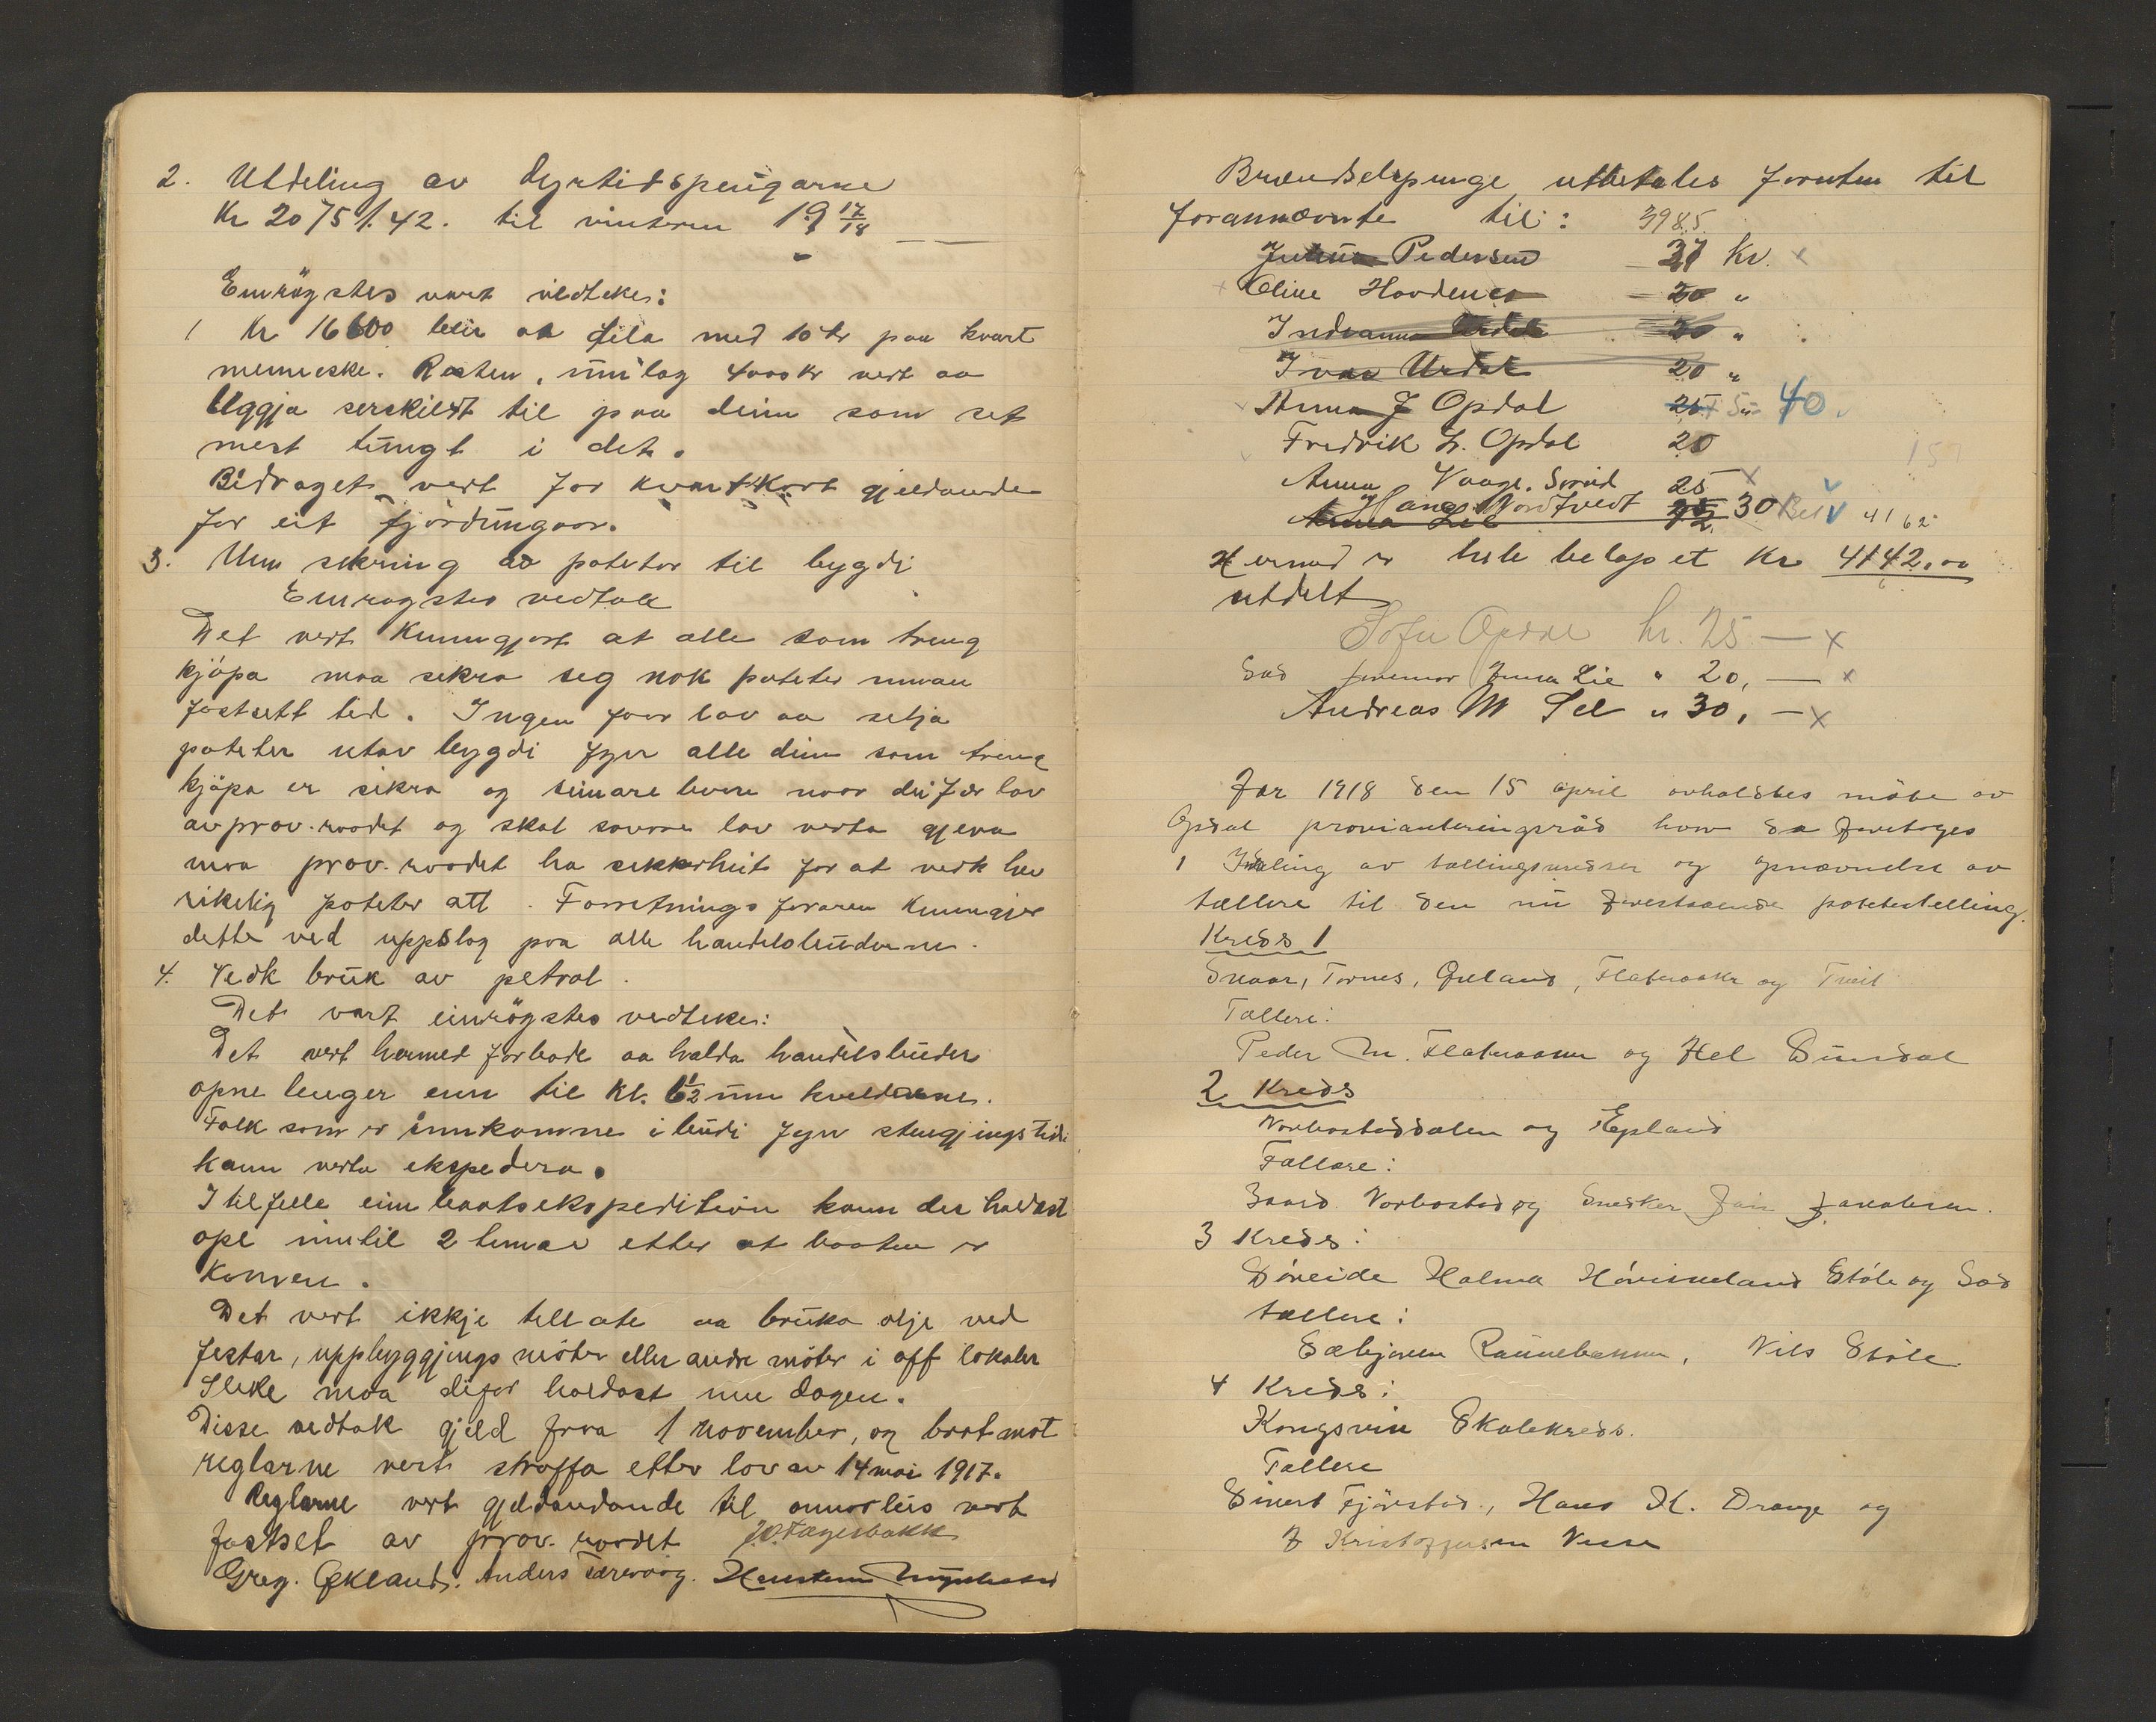 2. Utdeling av dyrtidspengarne
Kr 20751.42. til vinteren 19 17/18
Einrøgstes vart vedteke:
1 Kr 16600 blir aa dela med 10 kr paa kvart
menneske. Resten, umlag 4000 kr vert aa
leggja serskildt til paa deim som set
mest tungt i det.
Bidraget vert for kvart kort gjeldande
for eit fjordungaar.
3. Um sikring av poteter til bygdi
Einrøgstes vedtak
Det vert kunngjort at alle som treng
kjøpa maa sikra seg nok poteter innan
fastsett tid. Ingen faar lov aa selja
poteter utav bygdi fyrr alle deim som treng
kjøpa er sikra og seinare berre naar dei fær lov
av prov.raadet og skal saavore lov verta gjeva
maa prov.raadet ha sikkerheit for at vedk hev
rikelig poteter att. Forretningsføraren kunngjer
dette ved uppslag paa alle handelsbuderne.
4. Vedk bruk av petrol.
Det vart einrøgstes vedteke:
Det vert hermed forbode aa halda handelsbuder
opne lenger enn til kl. 6½ um kveldarne.
Folk som er innkomne i budi fyrr stengjingstidi
kann verta ekspedera.
I tilfelle um baatsekspedition kann der haldast
ope inntil 2 timar etter at baaten er
komen.
Det vert ikkje tillate aa bruka olje ved
festar, uppbyggjings møter eller andre møter i off lokaler
Slike maa difor haldast um dagen.
Disse vedtak gjeld fraa 1 november, og brot mot
reglarne vert straffa etter lov av 14 mai 1917.
Reglarne vert gjeldandande til annorleis vert
fastset av prov. raadet J.O. Fagerbakk
Greg. Økland. Anders Tærevaag.
Brændselspenge utbetales foruten til
forannævnte til: 3985
Pedersen 27 Kr. x
Oline Hovdenes 20 "
Indianna Urdal 20 "
Ivar Urdal 20 "
Anna J Opdal 25 40.
Fredrik L. Opdal 20
Anna Vaage. Søreid 25 x
og Hans Nordtvedt 30
Anna Lie 4162
Hermed er hele beløpet Kr 4142.00
utdelt
Sofie Opdal kr. 25 — x
Sad Anna Lie " 20, — x
Andreas M Sel " 30, — x
Aar 1918 den 15 april avholdtes møte av
Opdal provianteringsråd hvor da foretoges
1 Indeling av tællingskredser og opnævnelse av
tællere til den nu forestaaende potettælling.
Kreds 1
Tornes, Øreland, Flatraaker og Tveit
Tællere:
Peder M. Flatraaker og Hel Sundal
2 Kreds
Vorbostaddalen og Epland
Tællere:
Baard Vorbostad og Snedker Jakobsen.
3 Kreds:
Søreide Holma Høvisneland Støle og Sad
tællere:
Sæbjørn Raunebakken, Nils Støle.
4 Kreds:
Kongsvin Skolekreds.
Tællere
Sivert Fjørstad, Hans K. Drange og
J Kristoffersen Vesse